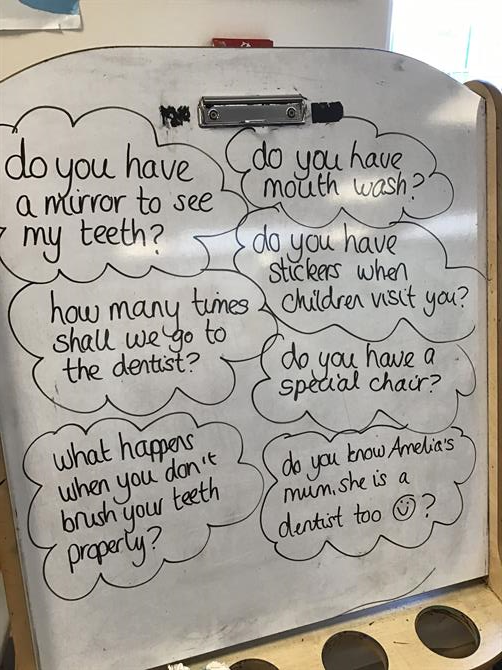 do you have
a mirror to see
my teeth?
do you have
mouth wash?
do you have
stickers when
children visit you?
how many times
shall we go to
the dentist?
do you have a
special chair?
what happens
when you don't
brush your teeth
properly?
do you know Amelia's
mum, she is a
dentist too ☺?